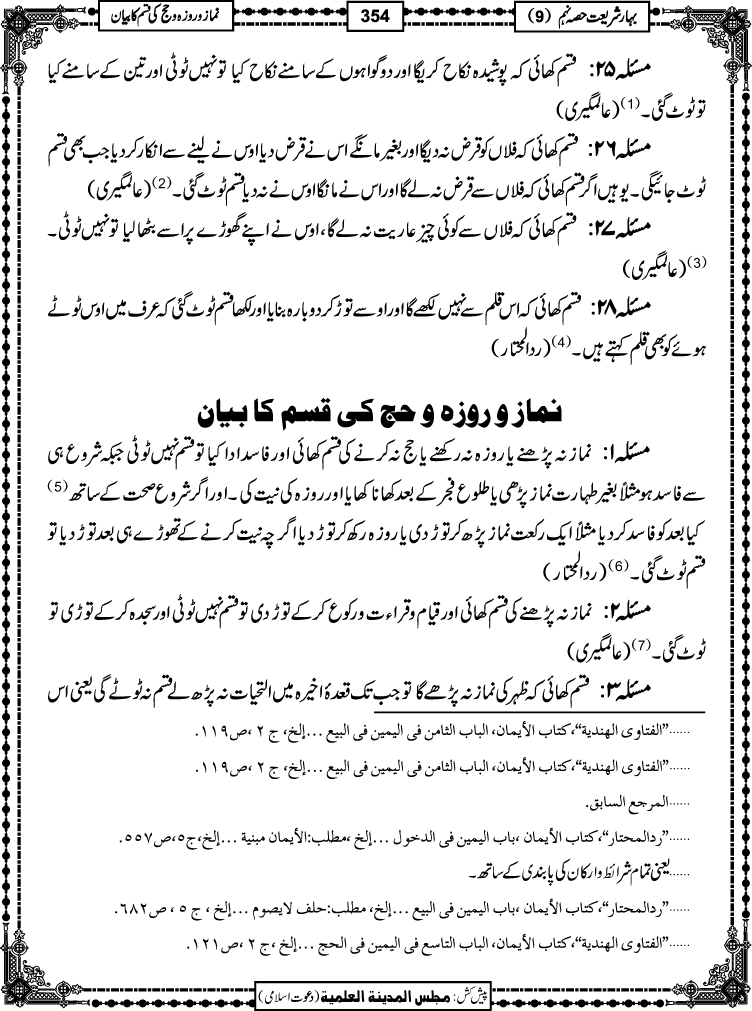 بہار شریعت حصہ نہم (9)
354
نماز و روزہ و حج کی قسم کا بیان
مسئلہ ۲۵: قسم کھائی کہ پوشیدہ نکاح کریگا اور دو گواہوں کے سامنے نکاح کیا تو نہیں ٹوٹی اور تین کے سامنے کیا
تو ٹوٹ گئی۔(1) (عالمگیری)
مسئلہ ۲۶: قسم کھائی کہ فلاں کو قرض نہ دیگا اور بغیر مانگے اس نے قرض دیا اوس نے لینے سے انکار کر دیا جب بھی قسم
ٹوٹ جائیگی۔ یوہیں اگر قسم کھائی کہ فلاں سے قرض نہ لے گا اور اس نے مانگا اوس نے نہ دیا قسم ٹوٹ گئی۔(2) (عالمگیری)
مسئلہ ۲۷: قسم کھائی کہ فلاں سے کوئی چیز عاریت نہ لے گا، اوس نے اپنے گھوڑے پر اسے بٹھا لیا تو نہیں ٹوٹی۔
(3) (عالمگیری)
مسئلہ ۲۸: قسم کھائی کہ اس قلم سے نہیں لکھے گا اور اوسے توڑ کر دوبارہ بنایا اور لکھا قسم ٹوٹ گئی کہ عرف میں اوس ٹوٹے
ہوئے کو بھی قلم کہتے ہیں۔(4) (ردالمحتار)
نماز و روزہ و حج کی قسم کا بیان
مسئلہ ۱: نماز نہ پڑھنے یا روزہ نہ رکھنے یا حج نہ کرنے کی قسم کھائی اور فاسد ادا کیا تو قسم نہیں ٹوٹی جبکہ شروع ہی
سے فاسد ہو مثلاً بغیر طہارت نماز پڑھی یا طلوع فجر کے بعد کھانا کھایا اور روزہ کی نیت کی۔ اور اگر شروع صحت کے ساتھ (5)
کیا بعد کو فاسد کر دیا مثلاً ایک رکعت نماز پڑھ کر توڑ دی یا روزہ رکھ کر توڑ دیا اگرچہ نیت کرنے کے تھوڑے ہی بعد توڑ دیا تو
قسم ٹوٹ گئی۔(6) (ردالمحتار)
مسئلہ ۲: نماز نہ پڑھنے کی قسم کھائی اور قیام و قراءت و رکوع کر کے توڑ دی تو قسم نہیں ٹوٹی اور سجدہ کر کے توڑی تو
ٹوٹ گئی۔(7) (عالمگیری)
مسئلہ ۳: قسم کھائی کہ ظہر کی نماز نہ پڑھے گا تو جب تک قعدۂ اخیرہ میں التحیات نہ پڑھ لے قسم نہ ٹوٹے گی یعنی اس
......”الفتاوى الهندية“،كتاب الأيمان، الباب الثامن فى اليمين فى البيع ...إلخ، ج ٢ ،ص١١٩.
......”الفتاوى الهندية“،كتاب الأيمان، الباب الثامن فى اليمين فى البيع ...إلخ، ج ٢ ،ص١١٩.
......المرجع السابق.
......”ردالمحتار“،كتاب الأيمان ،باب اليمين فى الدخول ...إلخ ،مطلب:الأيمان مبنية ...إلخ،ج٥،ص٥٥٧.
......یعنی تمام شرائط وارکان کی پابندی کے ساتھ۔
......”ردالمحتار“،كتاب الأيمان ،باب اليمين فى البيع ...إلخ، مطلب:حلف لايصوم ...إلخ ، ج ٥ ، ص٦٨٢.
......”الفتاوى الهندية“،كتاب الأيمان، الباب التاسع فى اليمين فى الحج ...إلخ ،ج ٢ ،ص١٢١.
پیش کش: مجلس المدينة العلمية (دعوت اسلامی)